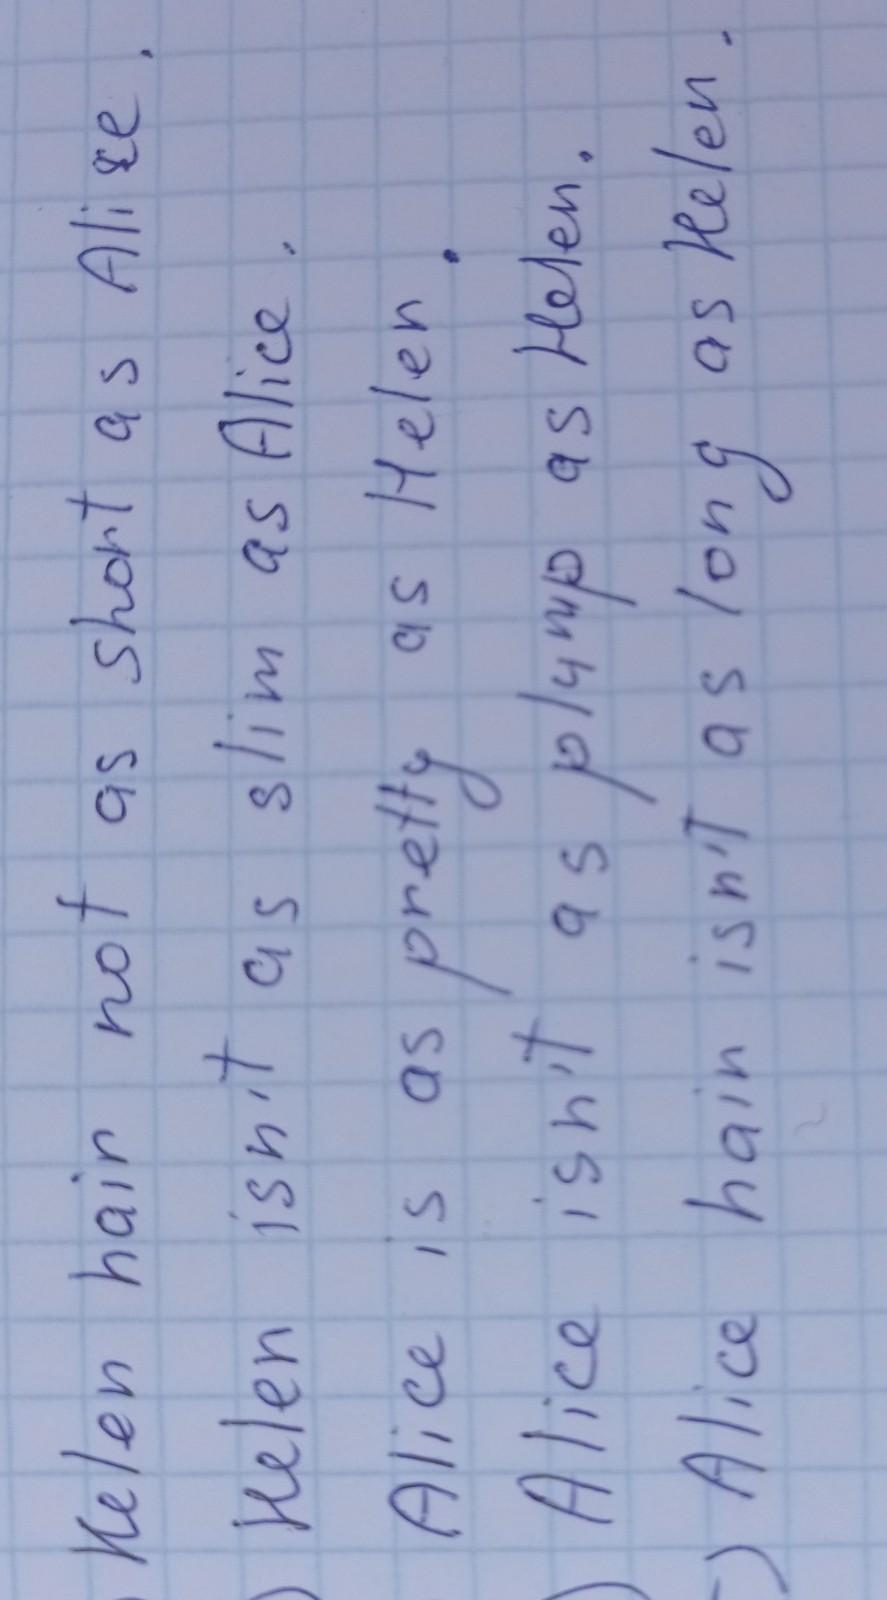 ) Helen hair not as short as Alice.
) Helen isn't as slim as Alice.
Alice is as pretty as Helen.
) Alice isn't as plump as Helen.
) Alice hair isn't as long as Helen.